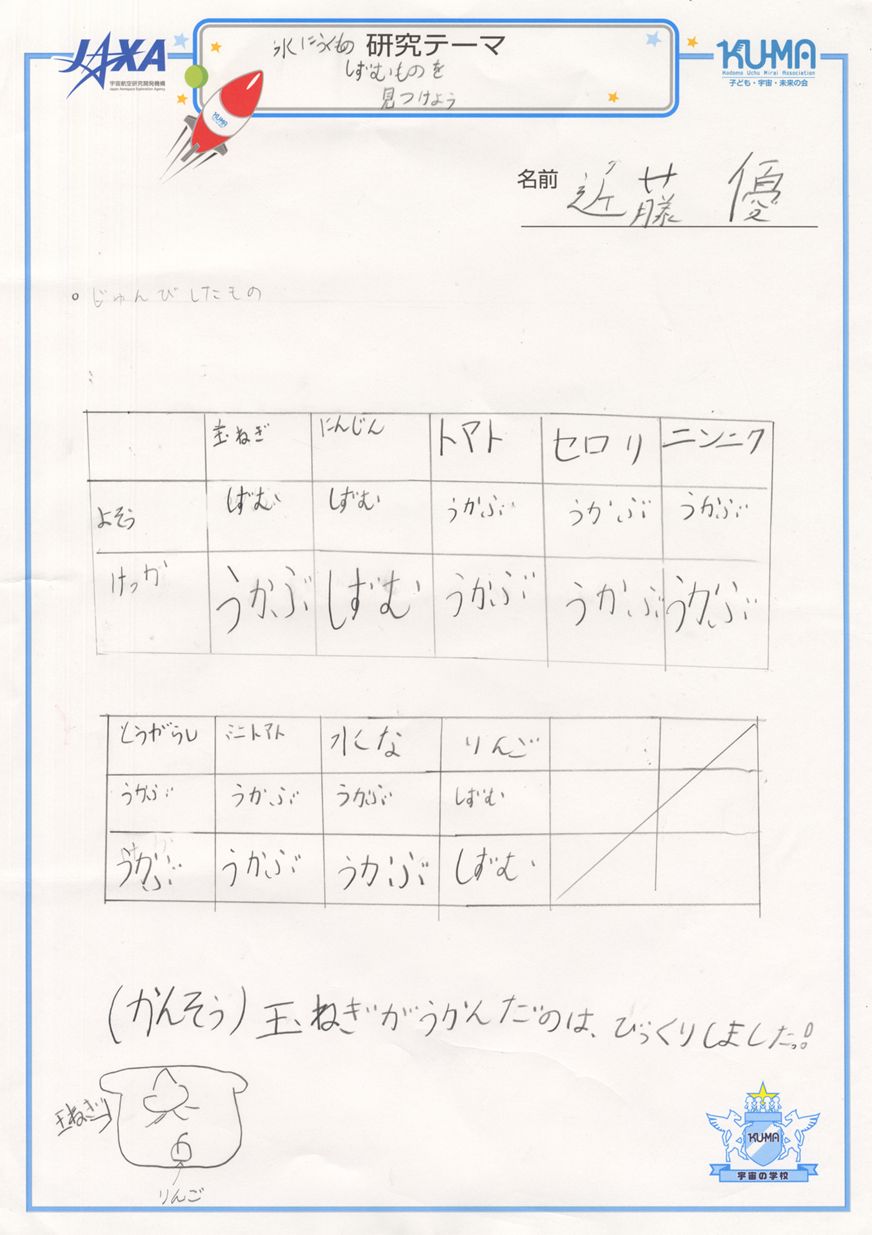 JAXA
宇宙航空研究開発機構
Japan Aerospace Exploration Agency
水にうくもの 研究テーマ
しずむものを
見つけよう
KU-MA
Kodomo Uchu Mirai Association
子ども・宇宙・未来の会
KU-MA
名前 近藤 優
。じゅんびしたもの
玉ねぎ にんじん トマト セロリ ニンニク
よそう しずむ しずむ うかぶ うかぶ うかぶ
けっか うかぶ しずむ うかぶ うかぶ うかぶ
とうがらし ミニトマト 水な りんご
うかぶ うかぶ うかぶ しずむ
うかぶ うかぶ うかぶ しずむ
(かんそう)玉ねぎがうかんだのは、びっくりしました!!
玉ねぎ
りんご
KU-MA
宇宙の学校